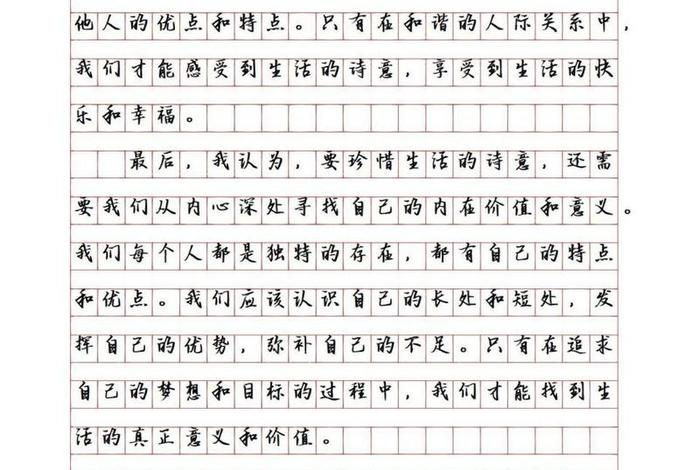 他人的优点和特点。只有在和谐的人际关系中，
我们才能感受到生活的诗意，享受到生活的快
乐和幸福。
最后，我认为，要珍惜生活的诗意，还需
要我们从内心深处寻找自己的内在价值和意义。
我们每个人都是独特的存在，都有自己的特点
和优点。我们应该认识自己的长处和短处，发
挥自己的优势，弥补自己的不足。只有在追求
自己的梦想和目标的过程中，我们才能找到生
活的真正意义和价值。